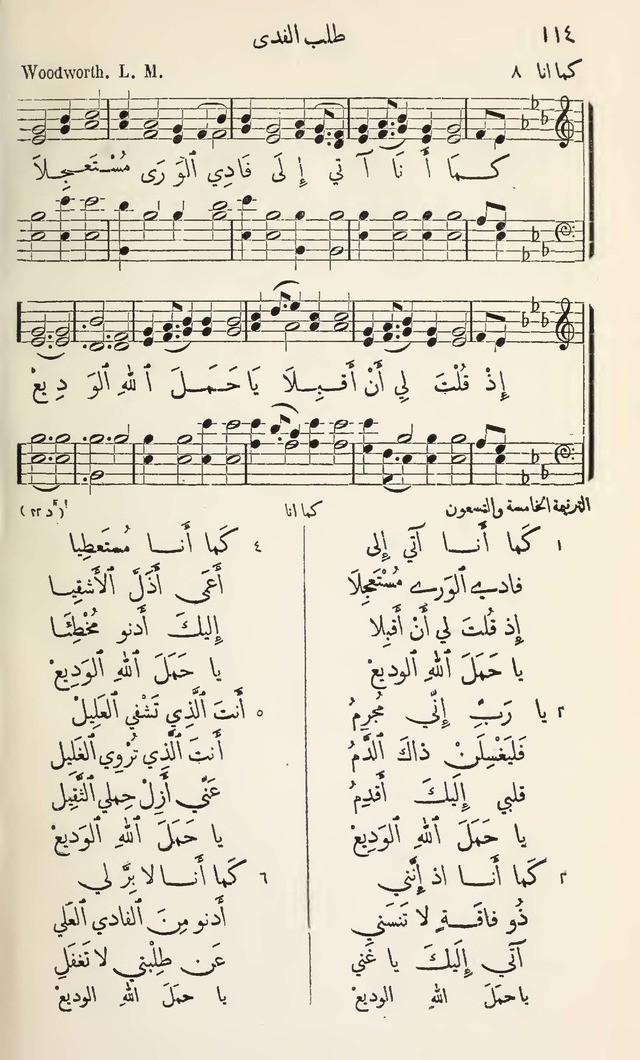 ١١٤
طلب الفدى
كما انا ٨
Woodworth. L. M.
كـمـا أَنَا آتي إِلَى فَادِي ٱلْوَرَى مُسْتَعْجِلَا
إِذْ قُلْتَ لِي أَنْ أَقْبِلَا يَا حَمَلَ ٱللهِ ٱلْوَدِيعْ
الترنيمة الخامسة والتسعون
كما انا
١ كَمَا أَنـا آتي إِلى
فادي ٱلْوَرى مُسْتَعْجِلَا
إِذ قُلتَ لي أَنْ أَقبِلا
يا حَمَلَ ٱللهِ ٱلوَدِيعْ
٢ يا رَبِّ إِنّي مُجرِمُ
فَليَغْسِلَنْ ذاكَ ٱلدَّمُ
قلبي إِلَيكَ أَقدِمُ
يا حَمَلَ ٱللهِ ٱلوَدِيعْ
٣ كَمَا أَنـا اذ إِنَّني
ذُو فاقَةٍ لا تَنسَني
آتي إِلَيكَ يا غَني
يا حمَلَ اللهِ الوديعْ
٤ كَمَا أَنـا مُستَعطِيا
أَعمَى أَذَلَّ ٱلأَشقِيـا
إِليكَ أَدنو مُخْطِئَـا
يا حَمَلَ ٱللهِ ٱلوَدِيعْ
٥ أَنتَ ٱلَّذِي تَشْفي ٱلعَلِيلْ
أَنتَ ٱلَّذِي تُرْوِي ٱلغَلِيل
عَنّي أَزِلْ حِملي ٱلثَّقِيل
يا حَمَلَ ٱللهِ ٱلوَدِيعْ
٦ كَمَا أَنـا لا بِرَّ لي
أَدنو مِنَ ٱلفادي ٱلعَلي
عَن طِلْبَتي لا تَغفَلِ
يا حمَلَ اللهِ الوديعْ